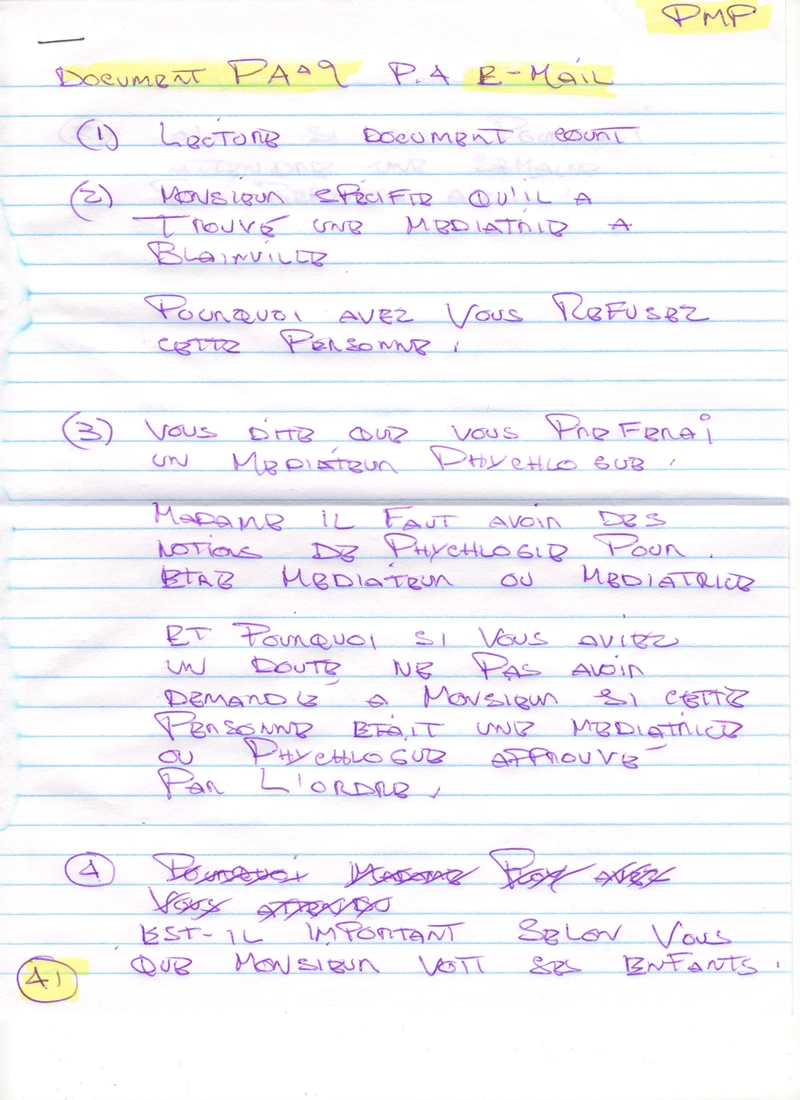 PMP
DOCUMENT PAA9 P.4 E-MAIL
(1) LECTURE DOCUMENT COURT
(2) MONSIEUR SPÉCIFIE QU'IL A
TROUVÉ UNE MEDIATRIE A
BLAINVILLE
POURQUOI AVEZ VOUS REFUSEZ
CETTE PERSONNE.
(3) VOUS DITE QUE VOUS PREFERAI
UN MEDIATEUR PHYCHLOGUE.
MADAME IL FAUT AVOIR DES
NOTIONS DE PHYCHLOGIE POUR
ETRE MEDIATEUR OU MEDIATRICE
ET POURQUOI SI VOUS AVIEZ
UN DOUTE NE PAS AVOIR
DEMANDÉ A MONSIEUR SI CETTE
PERSONNE ETAIT UNE MEDIATRICE
OU PHYCHLOGUE APPROUVÉ
PAR L'ORDRE.
(4) POURQUOI MADAME AVEZ
VOUS ATTENDU
EST-IL IMPORTANT SELON VOUS
QUE MONSIEUR VOIT SES ENFANTS.
41